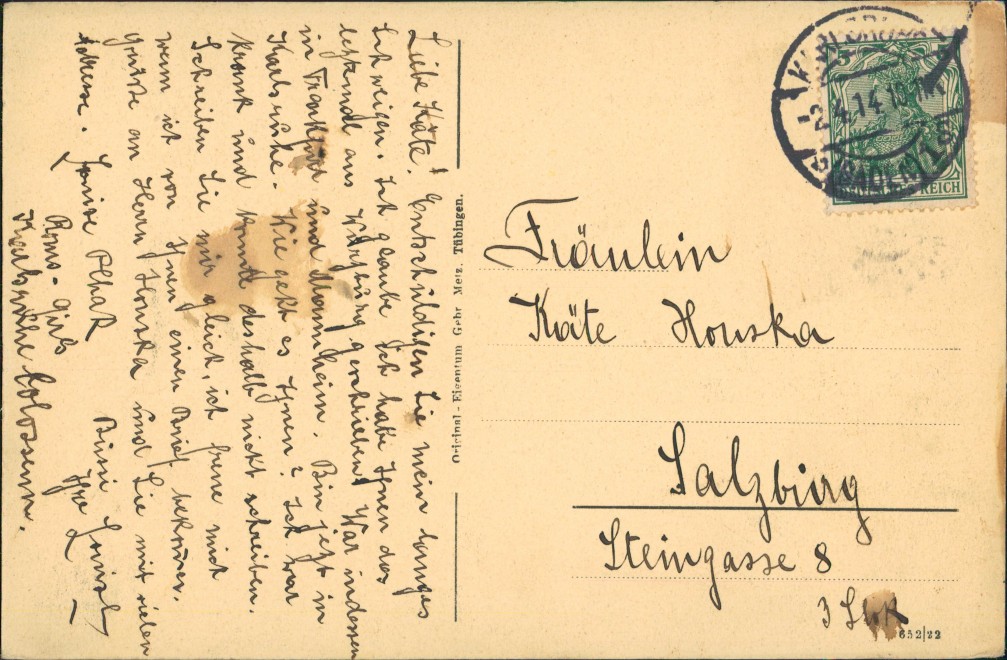 Liebe Käte! Entschuldigen Sie mein langes
Schweigen. Ich glaube ich habe Ihnen das
letztemal aus Würzburg geschrieben! War indessen
in Frankfurt und Mannheim. Bin jetzt in
Karlsruhe. Wie geht es Ihnen? Ich war
krank und konnte deshalb nicht schreiben.
Schreiben Sie mir gleich, ich freue mich
wenn ich von Ihnen einen Brief bekomme.
Grüsse an Herrn Houska und Sie mit vielen
Adresse. Louise
Bussi
Ihre
Karlsruhe Colosseum.
Original-Eigentum Gebr. Metz, Tübingen.
Fräulein
Käte Houska
Salzburg
Steingasse 8
3 Stk
652/22
2.4.14.
REICH